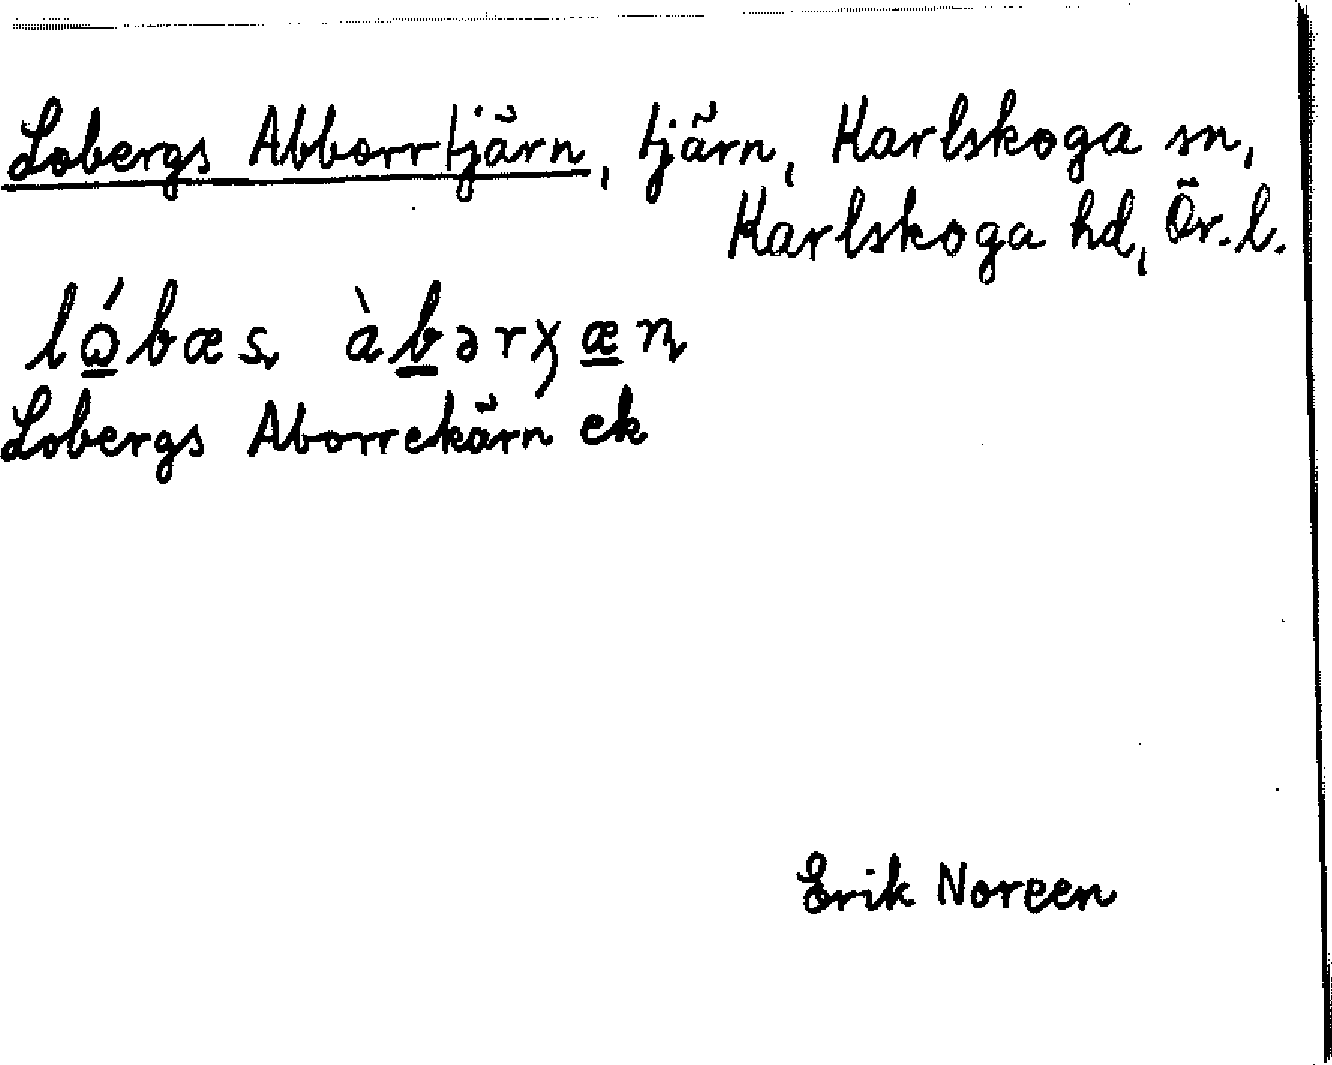 Lobergs Abborrtjärn, tjärn, Karlskoga sn,
Karlskoga hd, Ör. l.
Lobergs Aborrekärn ek
Erik Noreen